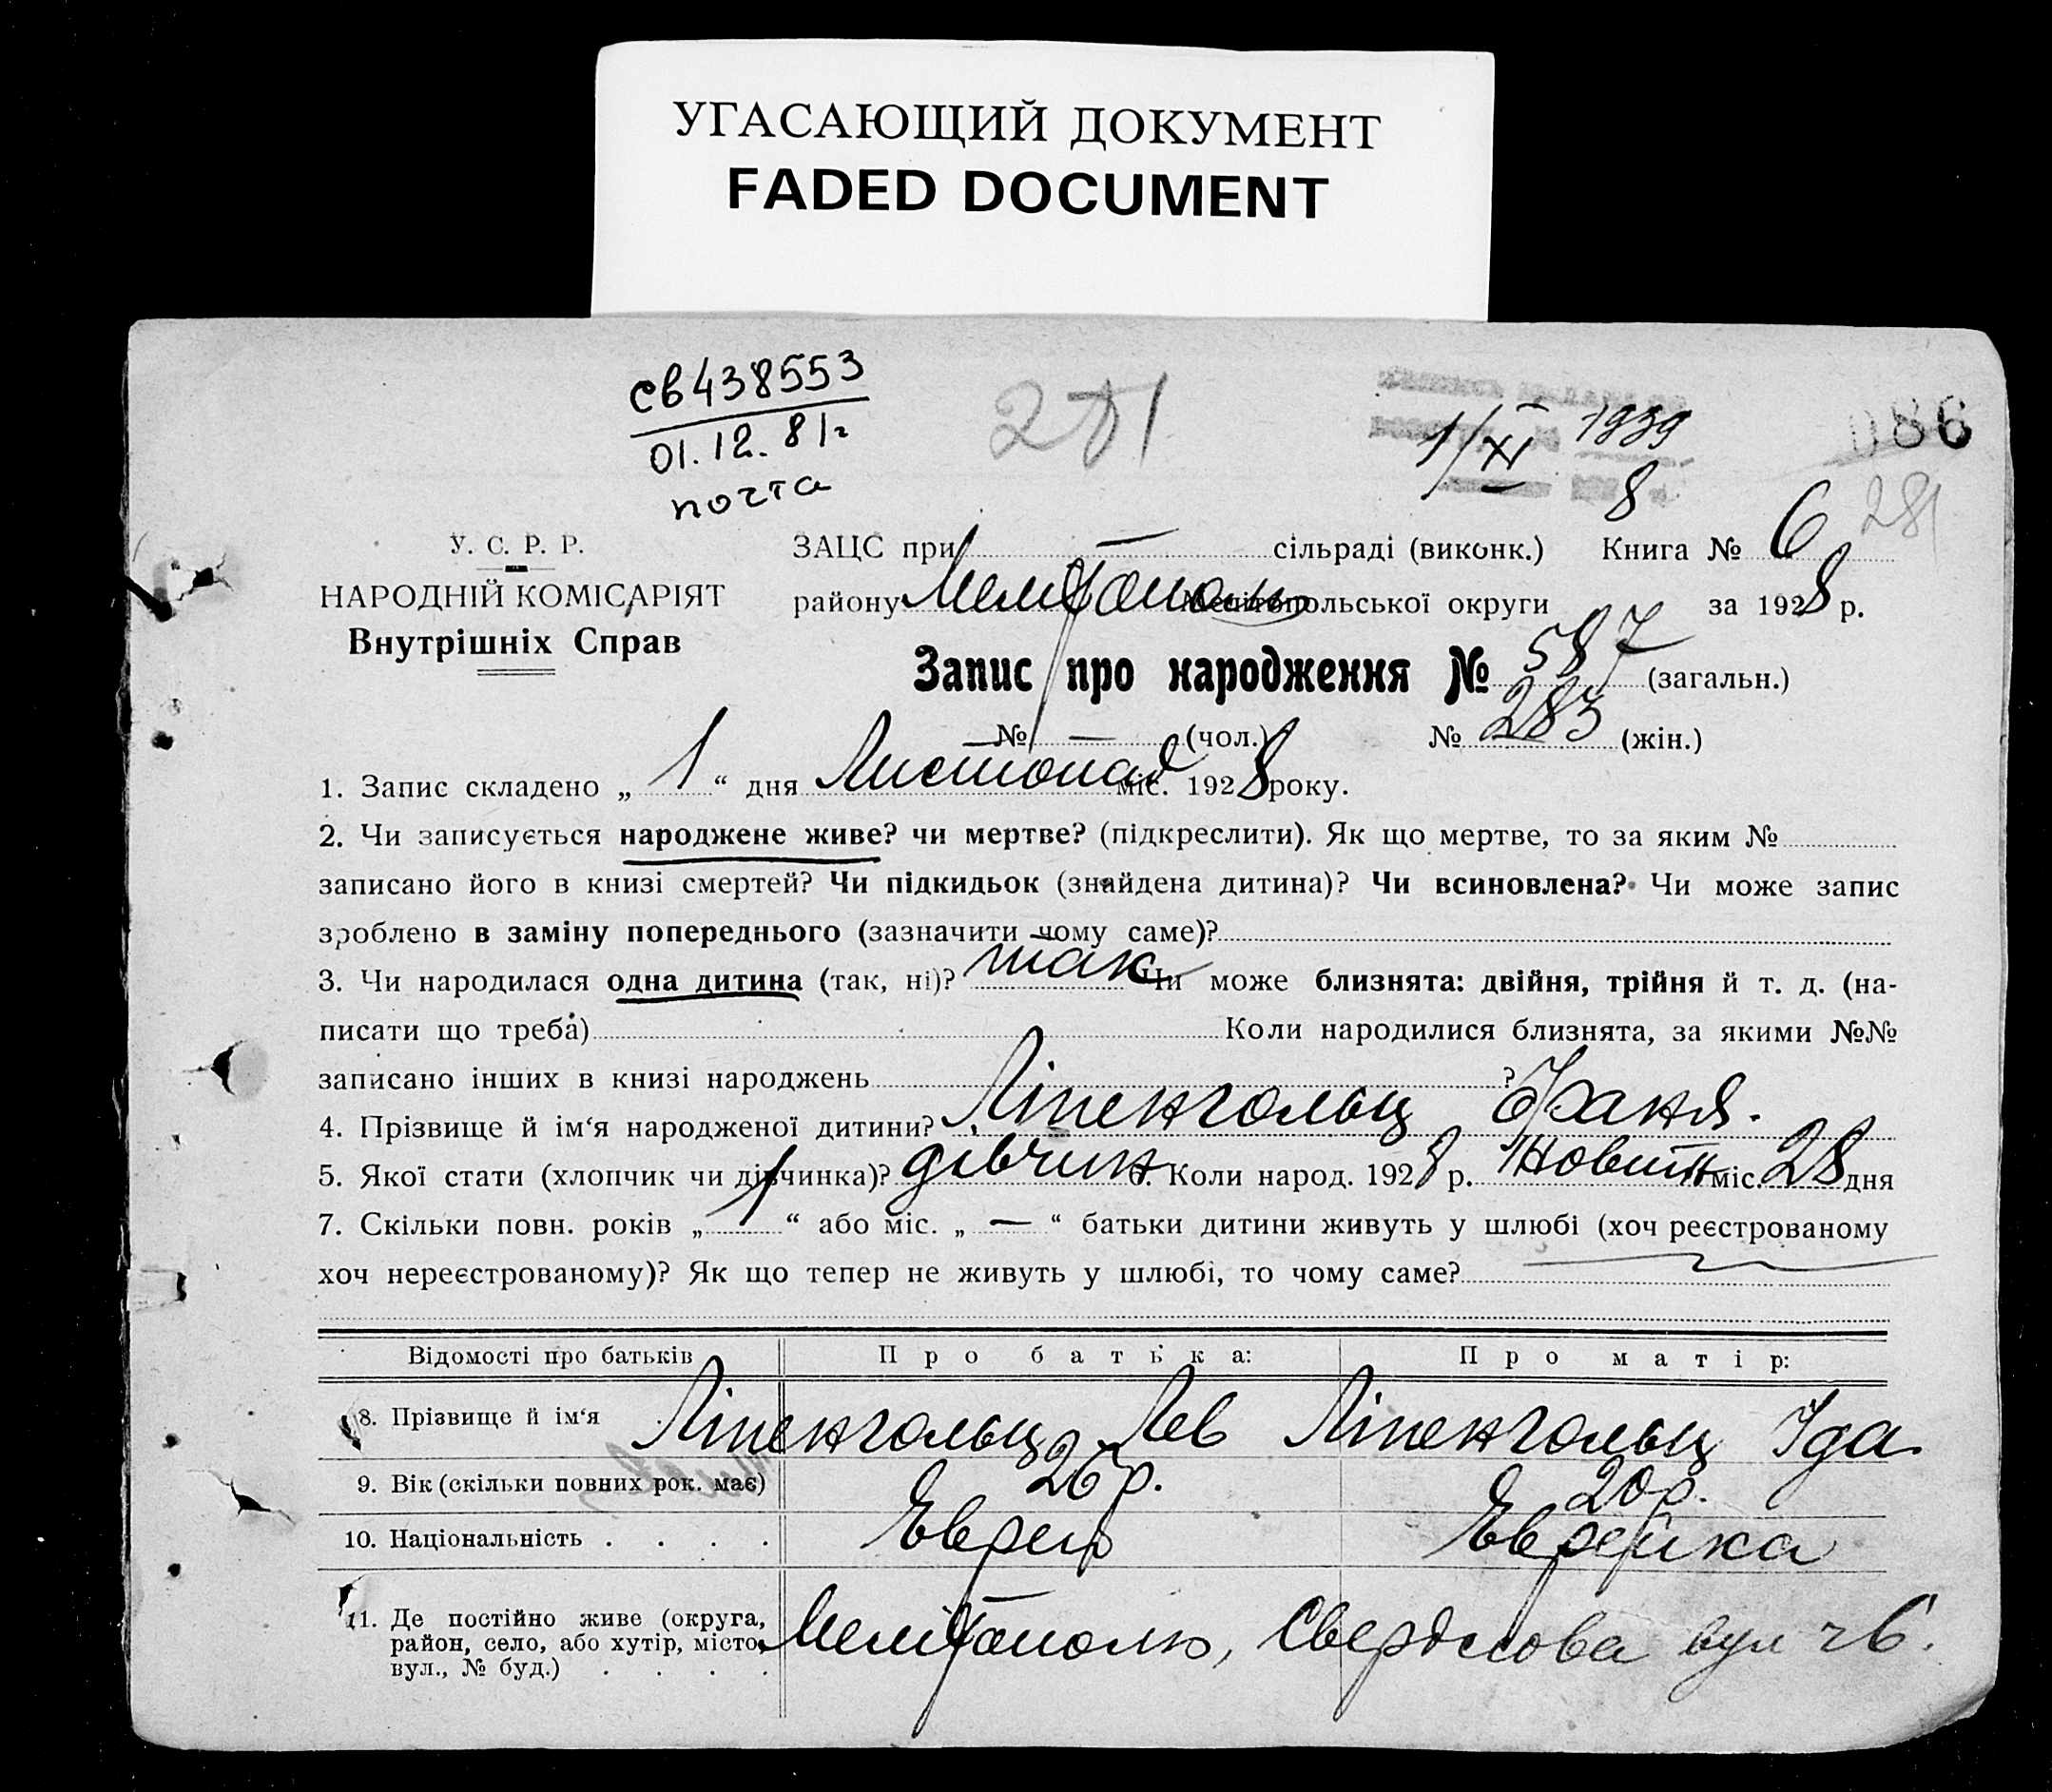 УГАСАЮЩИЙ ДОКУМЕНТ
FADED DOCUMENT
св438553
01.12.81г
почта
281
1/XI 1939
8
086
281
У. С. Р. Р.
НАРОДНІЙ КОМІСАРІЯТ
Внутрішніх Справ
ЗАЦС при — сільраді (виконк.) Книга № 6
району Мелітополь Мелітопольської округи за 1928 р.
Запис про народження № 587 (загальн.)
№ — (чол.) № 283 (жін.)
1. Запис складено „ 1 “ дня Листопад міс. 1928 року.
2. Чи записується народжене живе? чи мертве? (підкреслити). Як що мертве, то за яким №
записано його в книзі смертей? Чи підкидьок (знайдена дитина)? Чи всиновлена? Чи може запис
зроблено в заміну попереднього (зазначити чому саме)?
3. Чи народилася одна дитина (так, ні)? так Чи може близнята: двійня, трійня й т. д. (на-
писати що треба) Коли народилися близнята, за якими №№
записано інших в книзі народжень ?
4. Прізвище й ім‘я народженої дитини? Ліпенгольц Фаня.
5. Якої стати (хлопчик чи дівчинка)? дівчин 6. Коли народ. 1928 р. міс. 28 дня
7. Скільки повн. років „ 1 “ або міс. „ — “ батьки дитини живуть у шлюбі (хоч реєстрованому
хоч нереєстрованому)? Як що тепер не живуть у шлюбі, то чому саме?
Відомості про батьків Про батька: Про матір:
8. Прізвище й ім‘я Ліпенгольц Лев Ліпенгольц Іда
9. Вік (скільки повних рок. має) 26 р. 20 р.
10. Національність . . . . Еврей Еврейка
11. Де постійно живе (округа,
район, село, або хутір, місто,
вул., № буд.) . . . . Мелітополь, Свердлова вул ч 6.